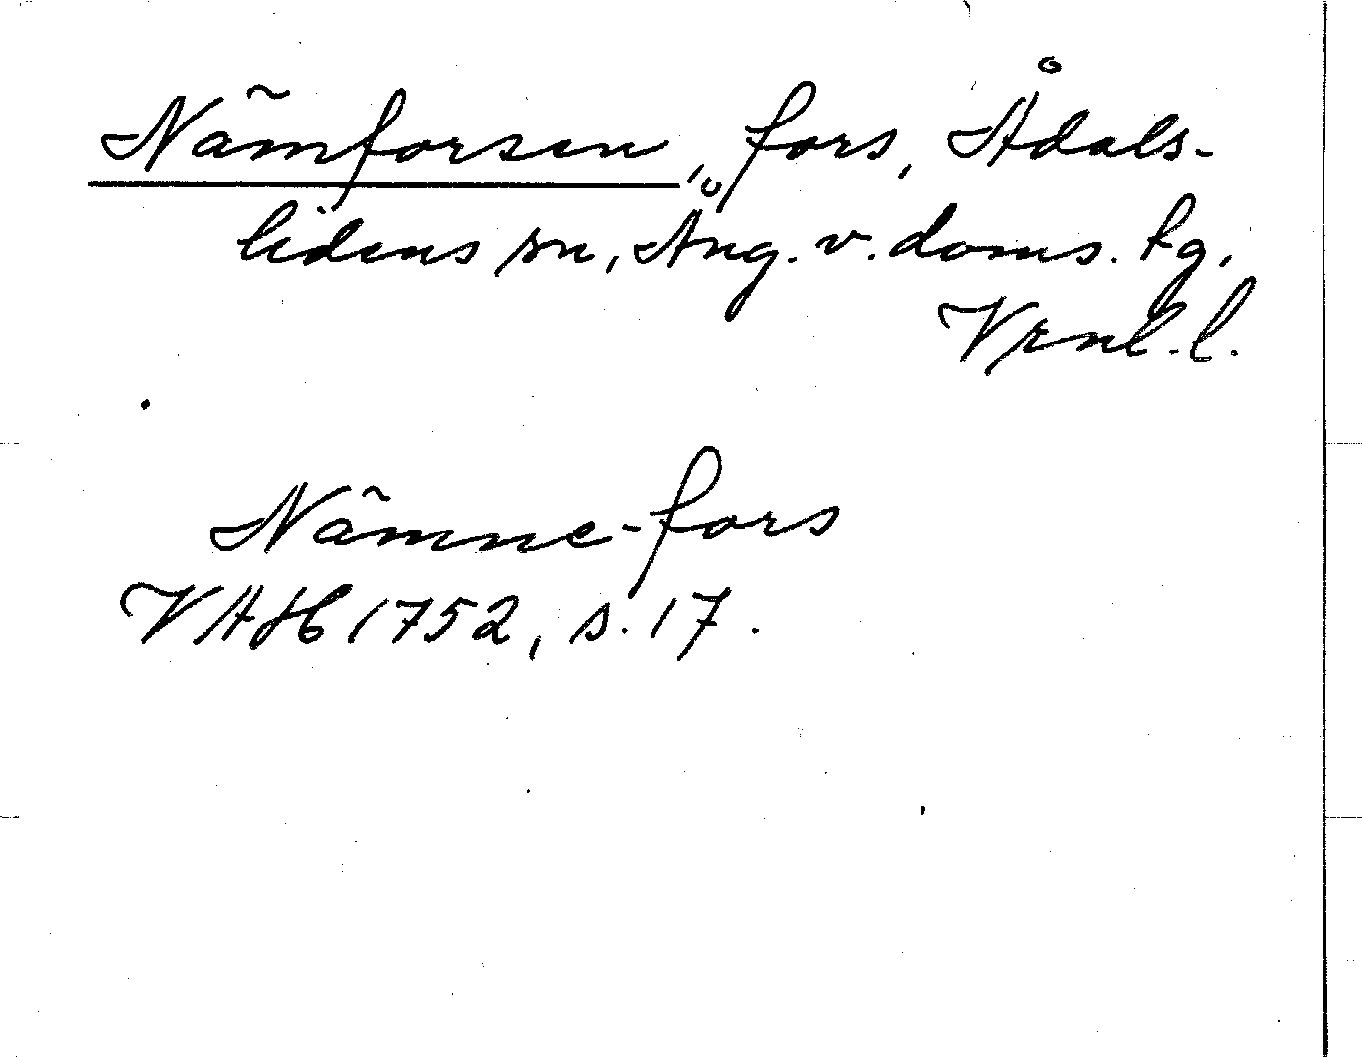 Nämforsen, fors, Ådals-
lidens sn, Ång. v. doms. tg.
Vrnl. l.
Nämne-fors
VAH 1752, s. 17.